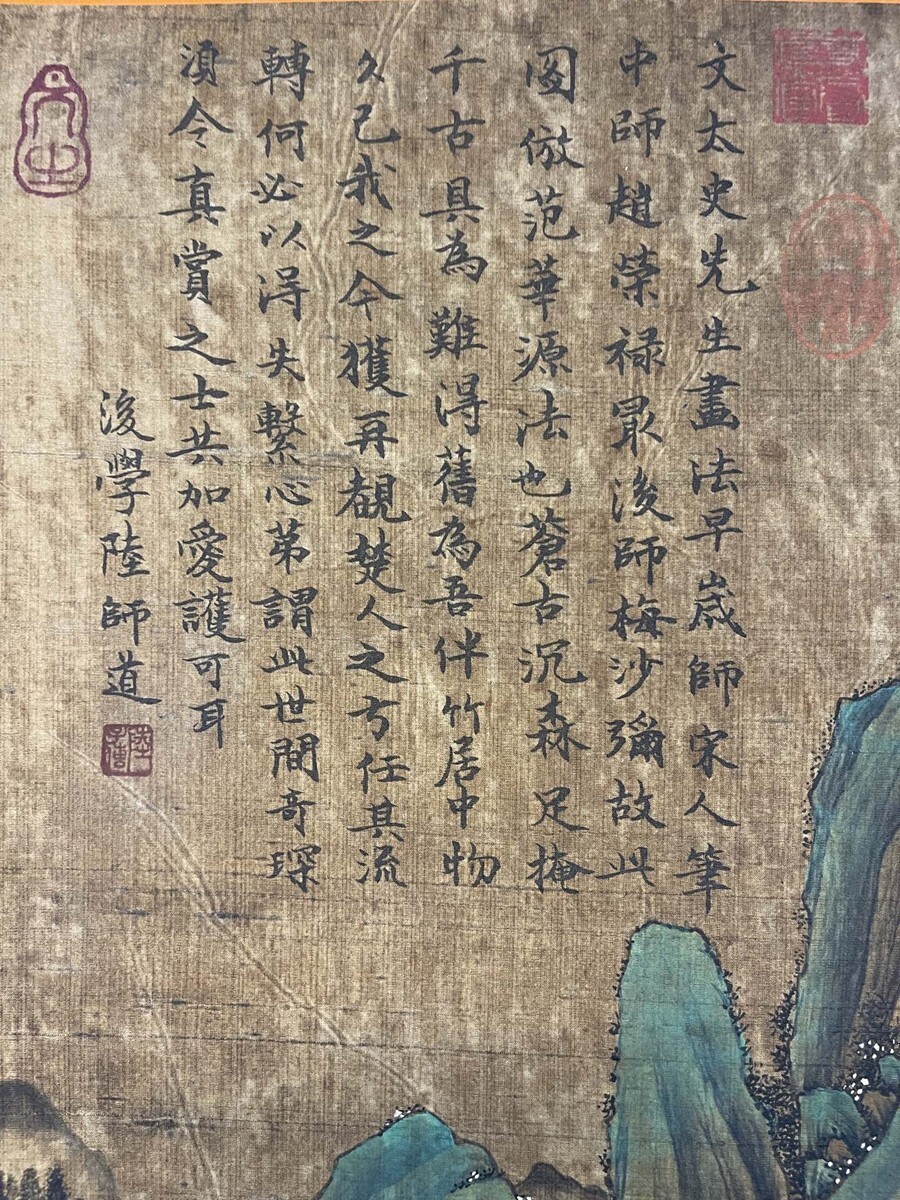 文太史先生畫法早歲師宋人筆
中師趙榮祿最後師梅沙彌故此
圖倣范華源法也蒼古沉森足掩
千古具為難得舊為吾伴竹居中物
久已我之今獲再觀楚人之弓任其流
轉何必以得失繫心第謂此世間奇琛
須令真賞之士共加愛護可耳
後學陸師道